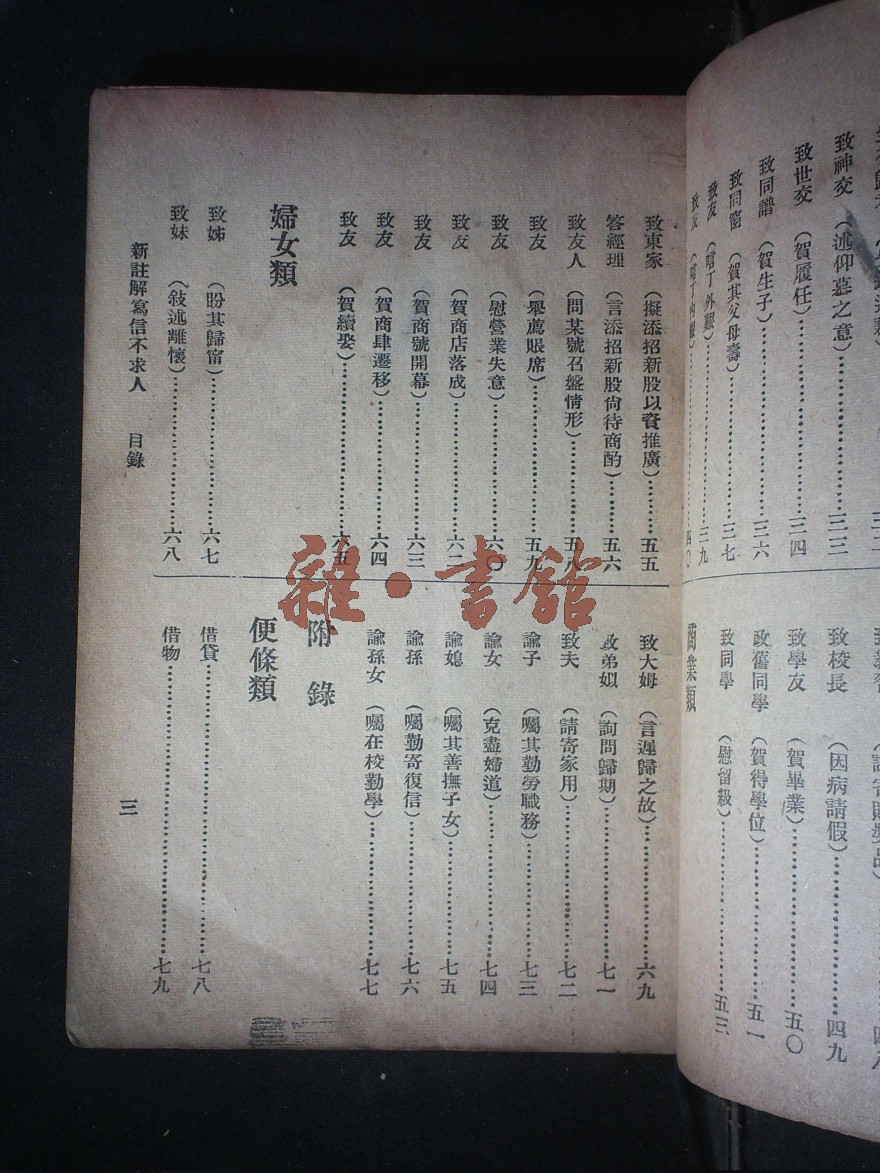 致神交（述仰慕之意）…………三三
致世交（賀履任）…………三四
致同譜（賀生子）…………三六
致同窗（賀其父母壽）…………三七
致友（唁丁外艱）…………三九
致友（唁丁內艱）…………四〇
致校長（因病請假）…………四九
致學友（賀畢業）…………五〇
致舊同學（賀得學位）…………五一
致同學（慰留級）…………五三
商業類
致東家（擬添招新股以資推廣）…………五五
答經理（言添招新股尙待商酌）…………五六
致友人（問某號召盤情形）…………五八
致友（舉薦賬席）…………五九
致友（慰營業失意）…………六〇
致友（賀商店落成）…………六二
致友（賀商號開幕）…………六三
致友（賀商肆遷移）…………六四
致友（賀續娶）…………六五
婦女類
致姊（盼其歸甯）…………六七
致妹（敍述離懷）…………六八
致大姆（言遲歸之故）…………六九
致弟姒（詢問歸期）…………七一
致夫（請寄家用）…………七二
諭子（囑其勤勞職務）…………七三
諭女（克盡婦道）…………七四
諭媳（囑其善撫子女）…………七五
諭孫（囑勤寄復信）…………七六
諭孫女（囑在校勤學）…………七七
附錄
便條類
借貸…………七八
借物…………七九
新註解寫信不求人　目錄
三
雜·書館